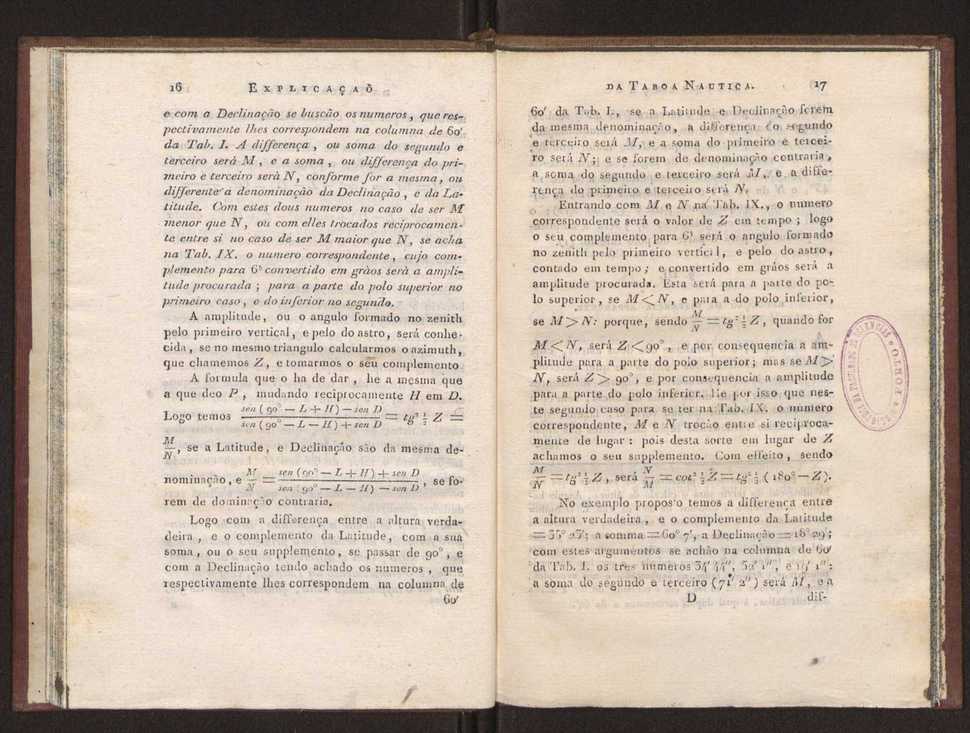 16 EXPLICAÇAÕ
e com a Declinação se buscão os numeros, que res-
pectivamente lhes correspondem na columna de 60'
da Tab. I. A differença, ou soma do segundo e
terceiro será M, e a soma, ou differença do pri-
meiro e terceiro será N, conforme for a mesma, ou
differente a denominação da Declinação, e da La-
titude. Com estes dous numeros no caso de ser M
menor que N, ou com elles trocados reciprocamen-
te entre si no caso de ser M maior que N, se acha
na Tab. IX. o numero correspondente, cujo com-
plemento para 6ʰ convertido em gráos será a ampli-
tude procurada; para a parte do polo superior no
primeiro caso, e do inferior no segundo.
A amplitude, ou o angulo formado no zenith
pelo primeiro vertical, e pelo do astro, será conhe-
cida, se no mesmo triangulo calcularmos o azimuth,
que chamemos Z, e tomarmos o seu complemento
A formula que o ha de dar, he a mesma que
a que deo P, mudando reciprocamente H em D.
Logo temos sen (90° — L + H) — sen D / sen (90° — L — H) + sen D = tg² ½ Z =
M/N, se a Latitude, e Declinação são da mesma de-
nominação, e M/N = sen (90° — L + H) + sen D / sen (90° — L — H) — sen D, se fo-
rem de dominação contraria.
Logo com a differença entre a altura verda-
deira, e o complemento da Latitude, com a sua
soma, ou o seu supplemento, se passar de 90°, e
com a Declinação tendo achado os numeros, que
respectivamente lhes correspondem na columna de
60'
DA TABOA NAUTICA. 17
60' da Tab. I., se a Latitude e Declinação forem
da mesma denominação, a differença do segundo
e terceiro será M, e a soma do primeiro e tercei-
ro será N; e se forem de denominação contraria,
a soma do segundo e terceiro será M, e a diffe-
rença do primeiro e terceiro será N.
Entrando com M e N na Tab. IX., o numero
correspondente será o valor de Z em tempo; logo
o seu complemento para 6ʰ será o angulo formado
no zenith pelo primeiro vertical, e pelo do astro,
contado em tempo; e convertido em gráos será a
amplitude procurada. Esta será para a parte do po-
lo superior, se M < N, e para a do polo inferior,
se M > N: porque, sendo M/N = tg² ½ Z, quando for
M < N, será Z < 90°, e por consequencia a am-
plitude para a parte do polo superior; mas se M >
N, será Z > 90°, e por consequencia a amplitude
para a parte do polo inferior. He por isso que nes-
te segundo caso para se ter na Tab. IX. o numero
correspondente, M e N trocão entre si reciproca-
mente de lugar: pois desta sorte em lugar de Z
achamos o seu supplemento. Com effeito, sendo
M/N = tg² ½ Z, será N/M = cot² ½ Z = tg² ½ (180° — Z).
No exemplo proposto temos a differença entre
a altura verdadeira, e o complemento da Latitude
= 35° 25'; a somma = 60° 7', a Declinação = 18° 29';
com estes argumentos se achão na columna de 60'
da Tab. I. os tres numeros 34' 44", 52' 1", e 19' 1":
a soma do segundo e terceiro (71' 2") será M, e a
D dif-